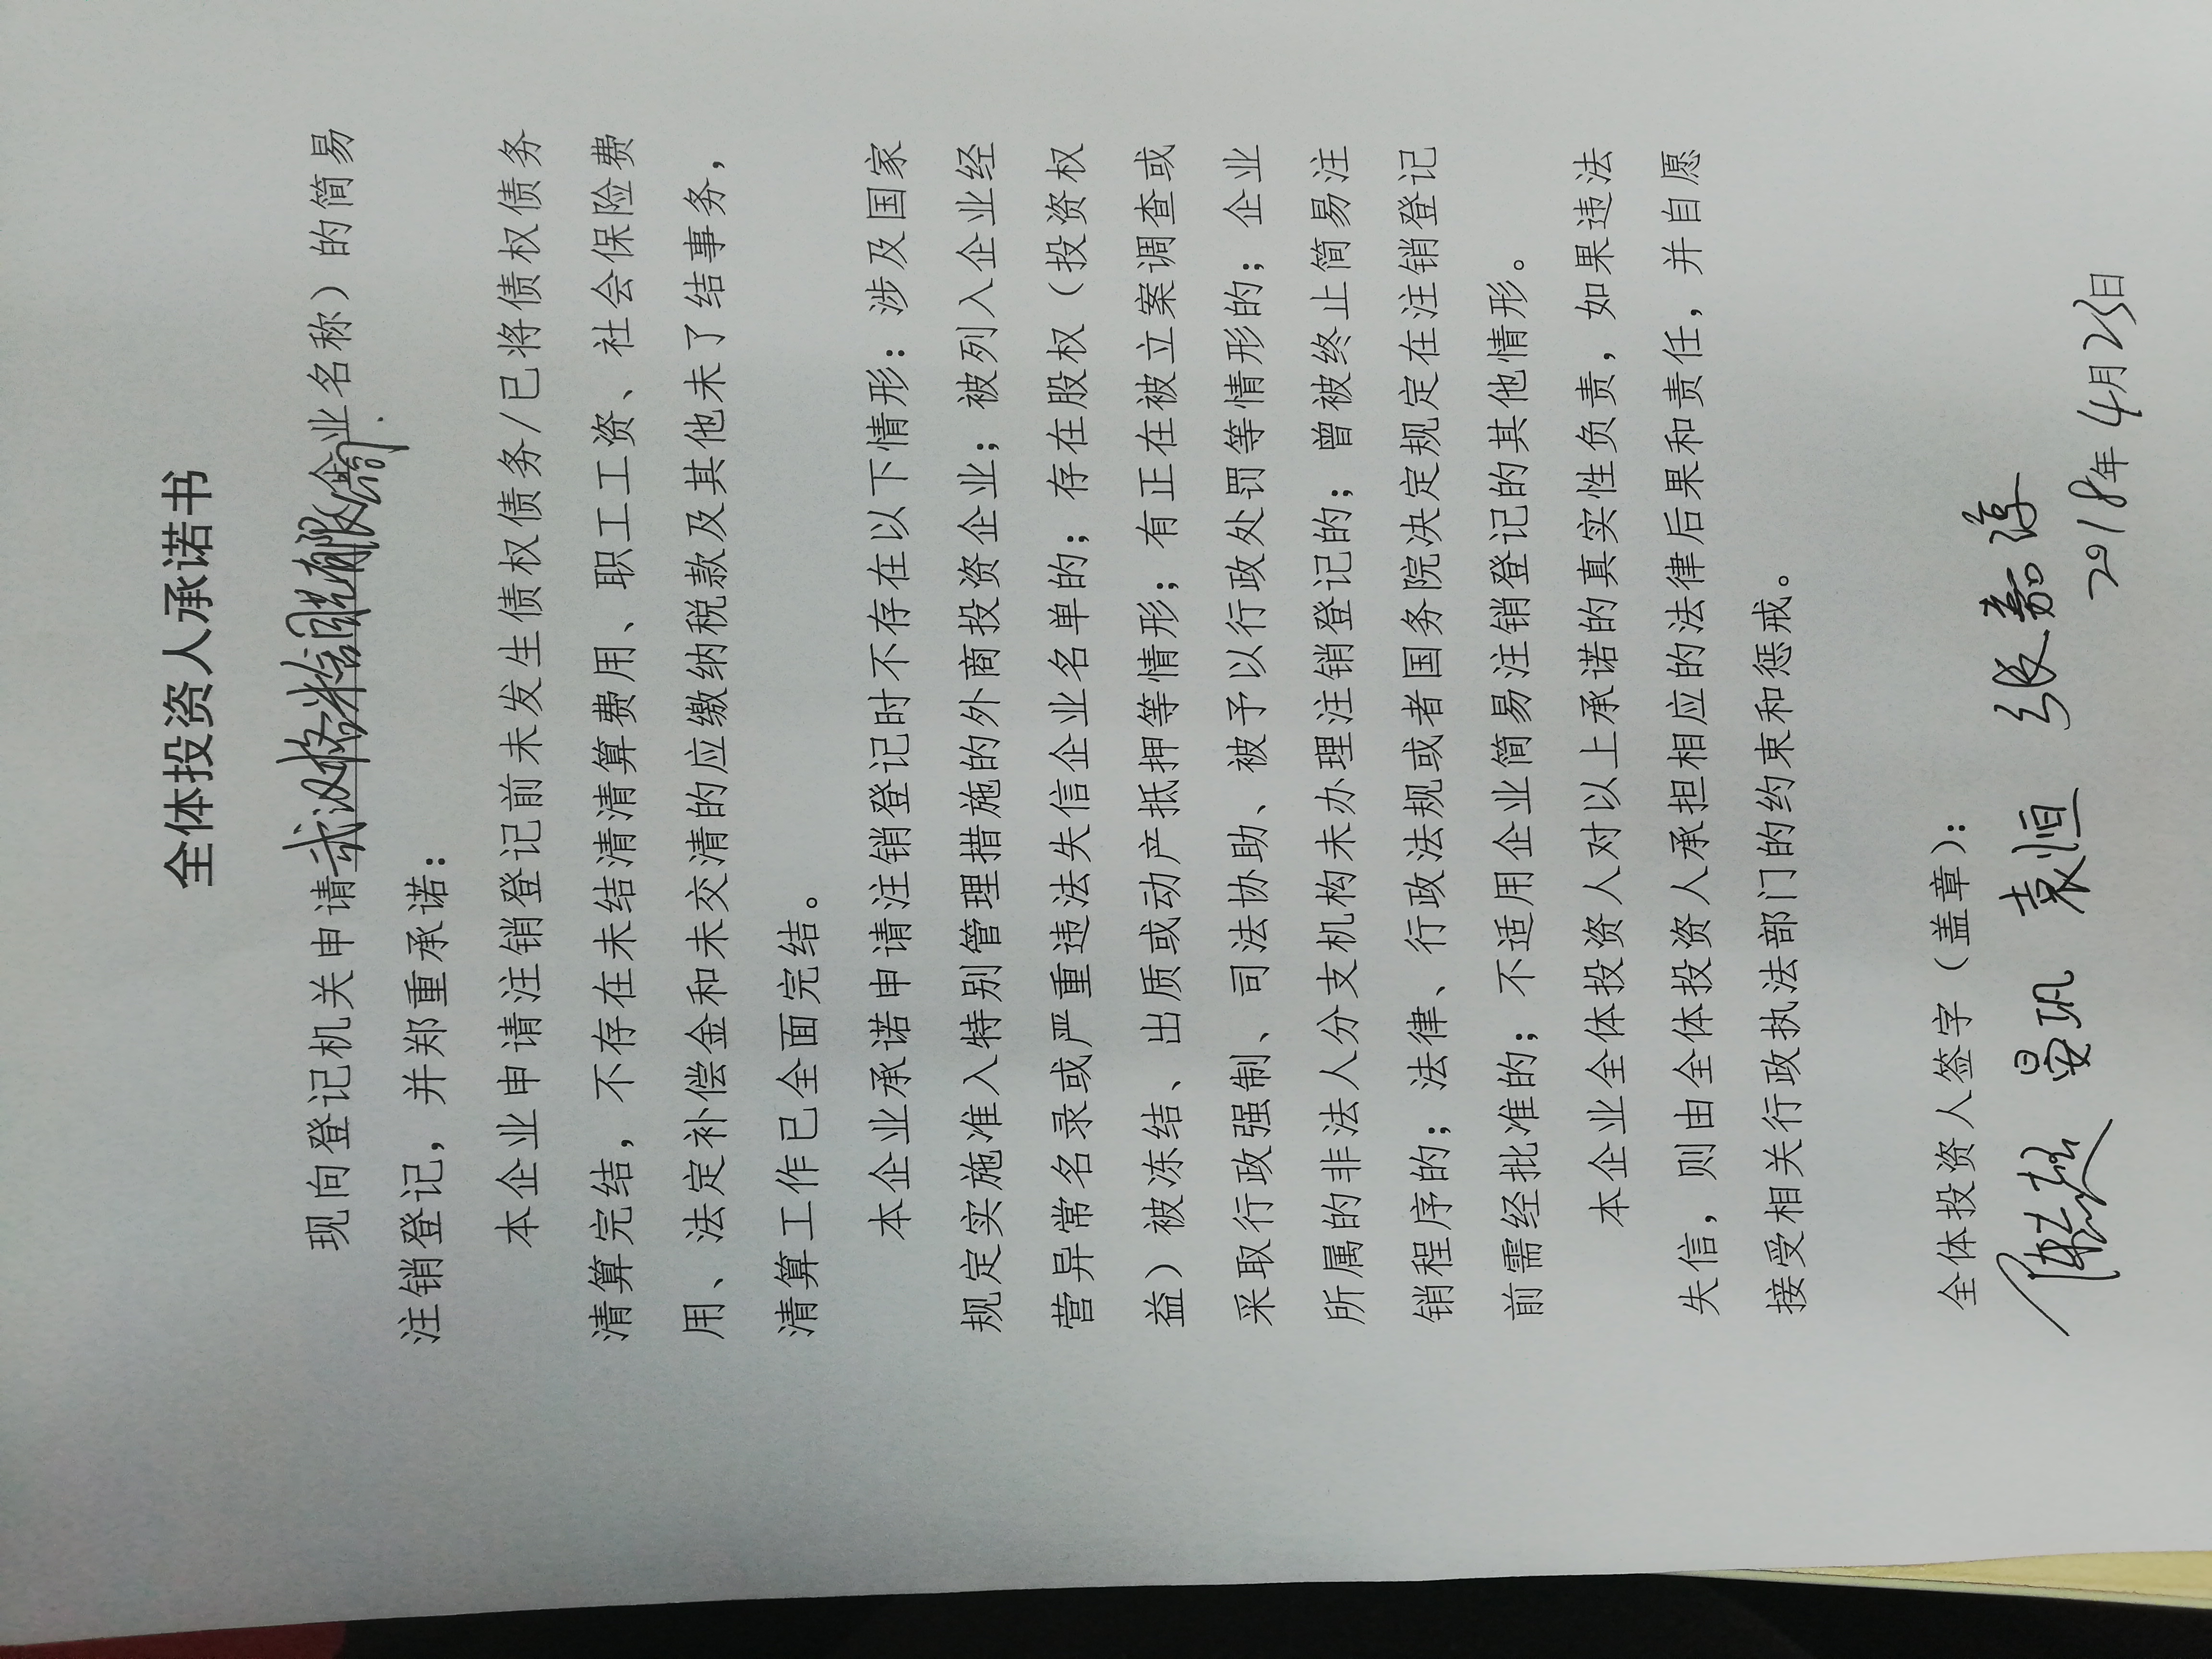 全体投资人承诺书
现向登记机关申请武汉 有限公司(企业名称)的简易
注销登记，并郑重承诺：
本企业申请注销登记前未发生债权债务/已将债权债务
清算完结，不存在未结清清算费用、职工工资、社会保险费
用、法定补偿金和未交清的应缴纳税款及其他未了结事务，
清算工作已全面完结。
本企业承诺申请注销登记时不存在以下情形：涉及国家
规定实施准入特别管理措施的外商投资企业；被列入企业经
营异常名录或严重违法失信企业名单的；存在股权（投资权
益）被冻结、出质或动产抵押等情形；有正在被立案调查或
采取行政强制、司法协助、被予以行政处罚等情形的；企业
所属的非法人分支机构未办理注销登记的；曾被终止简易注
销程序的；法律、行政法规或者国务院决定规定在注销登记
前需经批准的；不适用企业简易注销登记的其他情形。
本企业全体投资人对以上承诺的真实性负责，如果违法
失信，则由全体投资人承担相应的法律后果和责任，并自愿
接受相关行政执法部门的约束和惩戒。
全体投资人签字（盖章）：
袁恒 张嘉淳
2018年4月23日